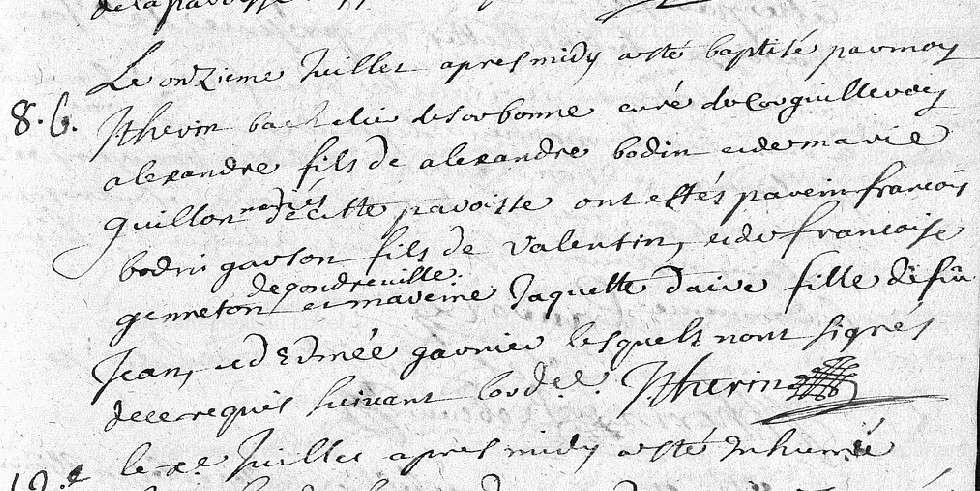 de la paroisse
Le onzieme Juillet apres midy a esté baptisé par moy
8. b. Jtherin bachelier de sorbonne curé de Corquilleroy
alexandre fils de alexandre bodin et de marie
Guillon mariés de cette paroisse ont estés parein francois
bodin garson fils de Valentin, et de francoise
genneton de gondreville et mareine Jaquette daive fille de fû
Jean, et d'Edmée garnier lesquels n'ont signés
de ce requis suivant l'ord.ce Jtherin
12.e le x.e Juillet apres midy a esté Inhumé